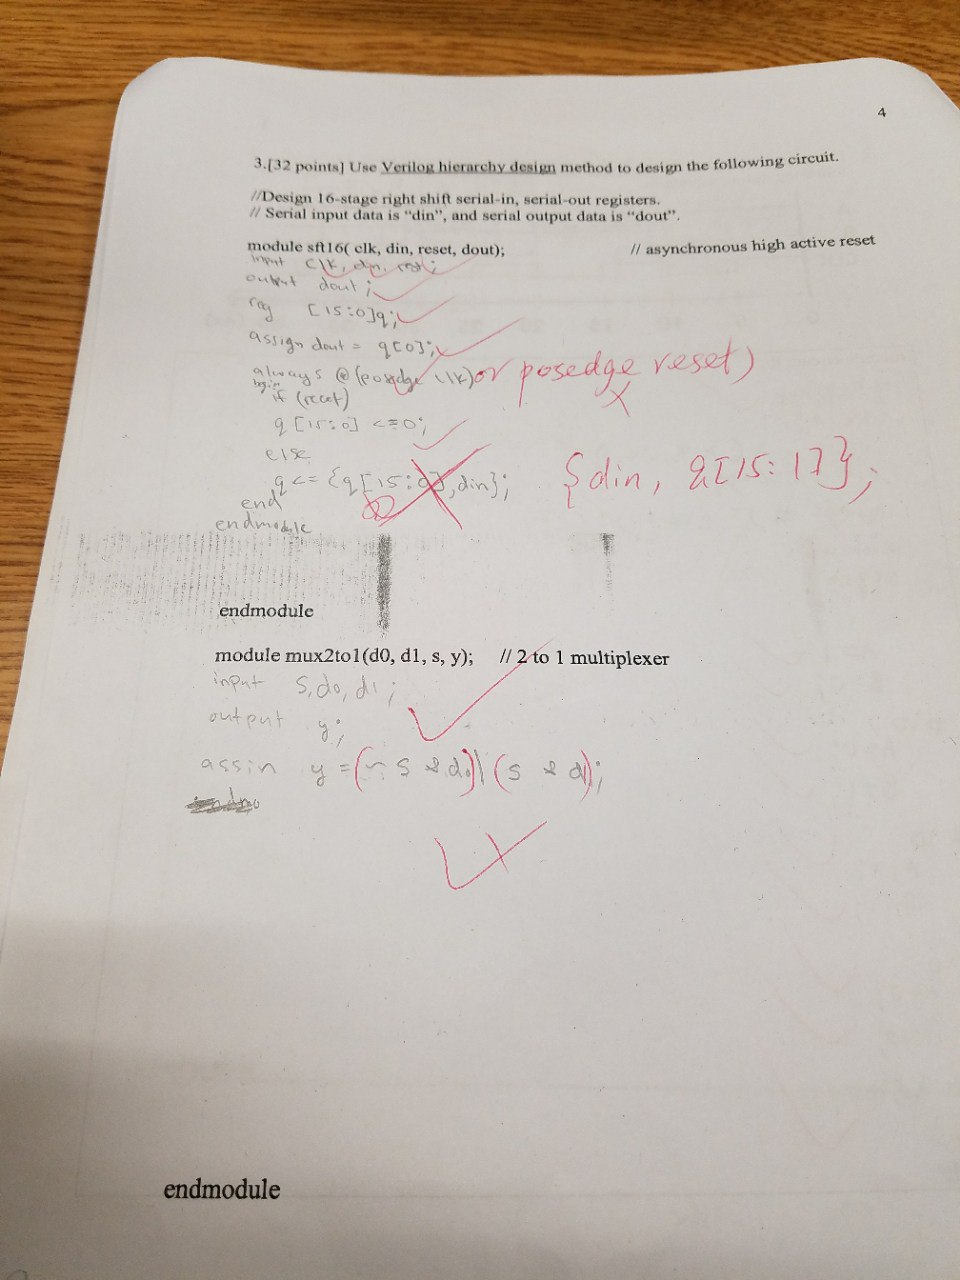 4
3.[32 points] Use Verilog hierarchy design method to design the following circuit.
//Design 16-stage right shift serial-in, serial-out registers.
// Serial input data is “din”, and serial output data is “dout”.
module sft16( clk, din, reset, dout); // asynchronous high active reset
input clk, din,
output dout;
reg [15:0]q;
assign dout = q[0];
always @(posedge clk) or posedge reset)
begin
if (reset)
q[15:0] <=0;
else
q<= {q[15:0],din}; {din, q[15:1]};
end
endmodule
endmodule
module mux2to1(d0, d1, s, y); // 2 to 1 multiplexer
input s,d0,d1;
output y;
assin y =(~s & d0)|(s & d1);
endmodule